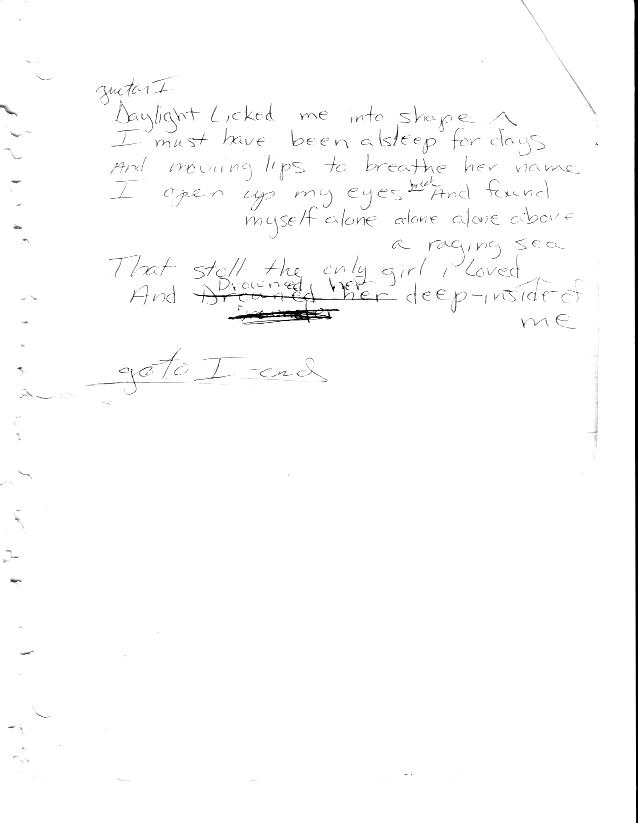 guitar I
Daylight Licked me into shape
I must have been alsleep for days
And moving lips to breathe her name
I open up my eyes break And found
myself alone alone alone above
a raging sea
That stoll the only girl i Loved
Drowned her
And Drowned her deep-inside of
me
goto I-end